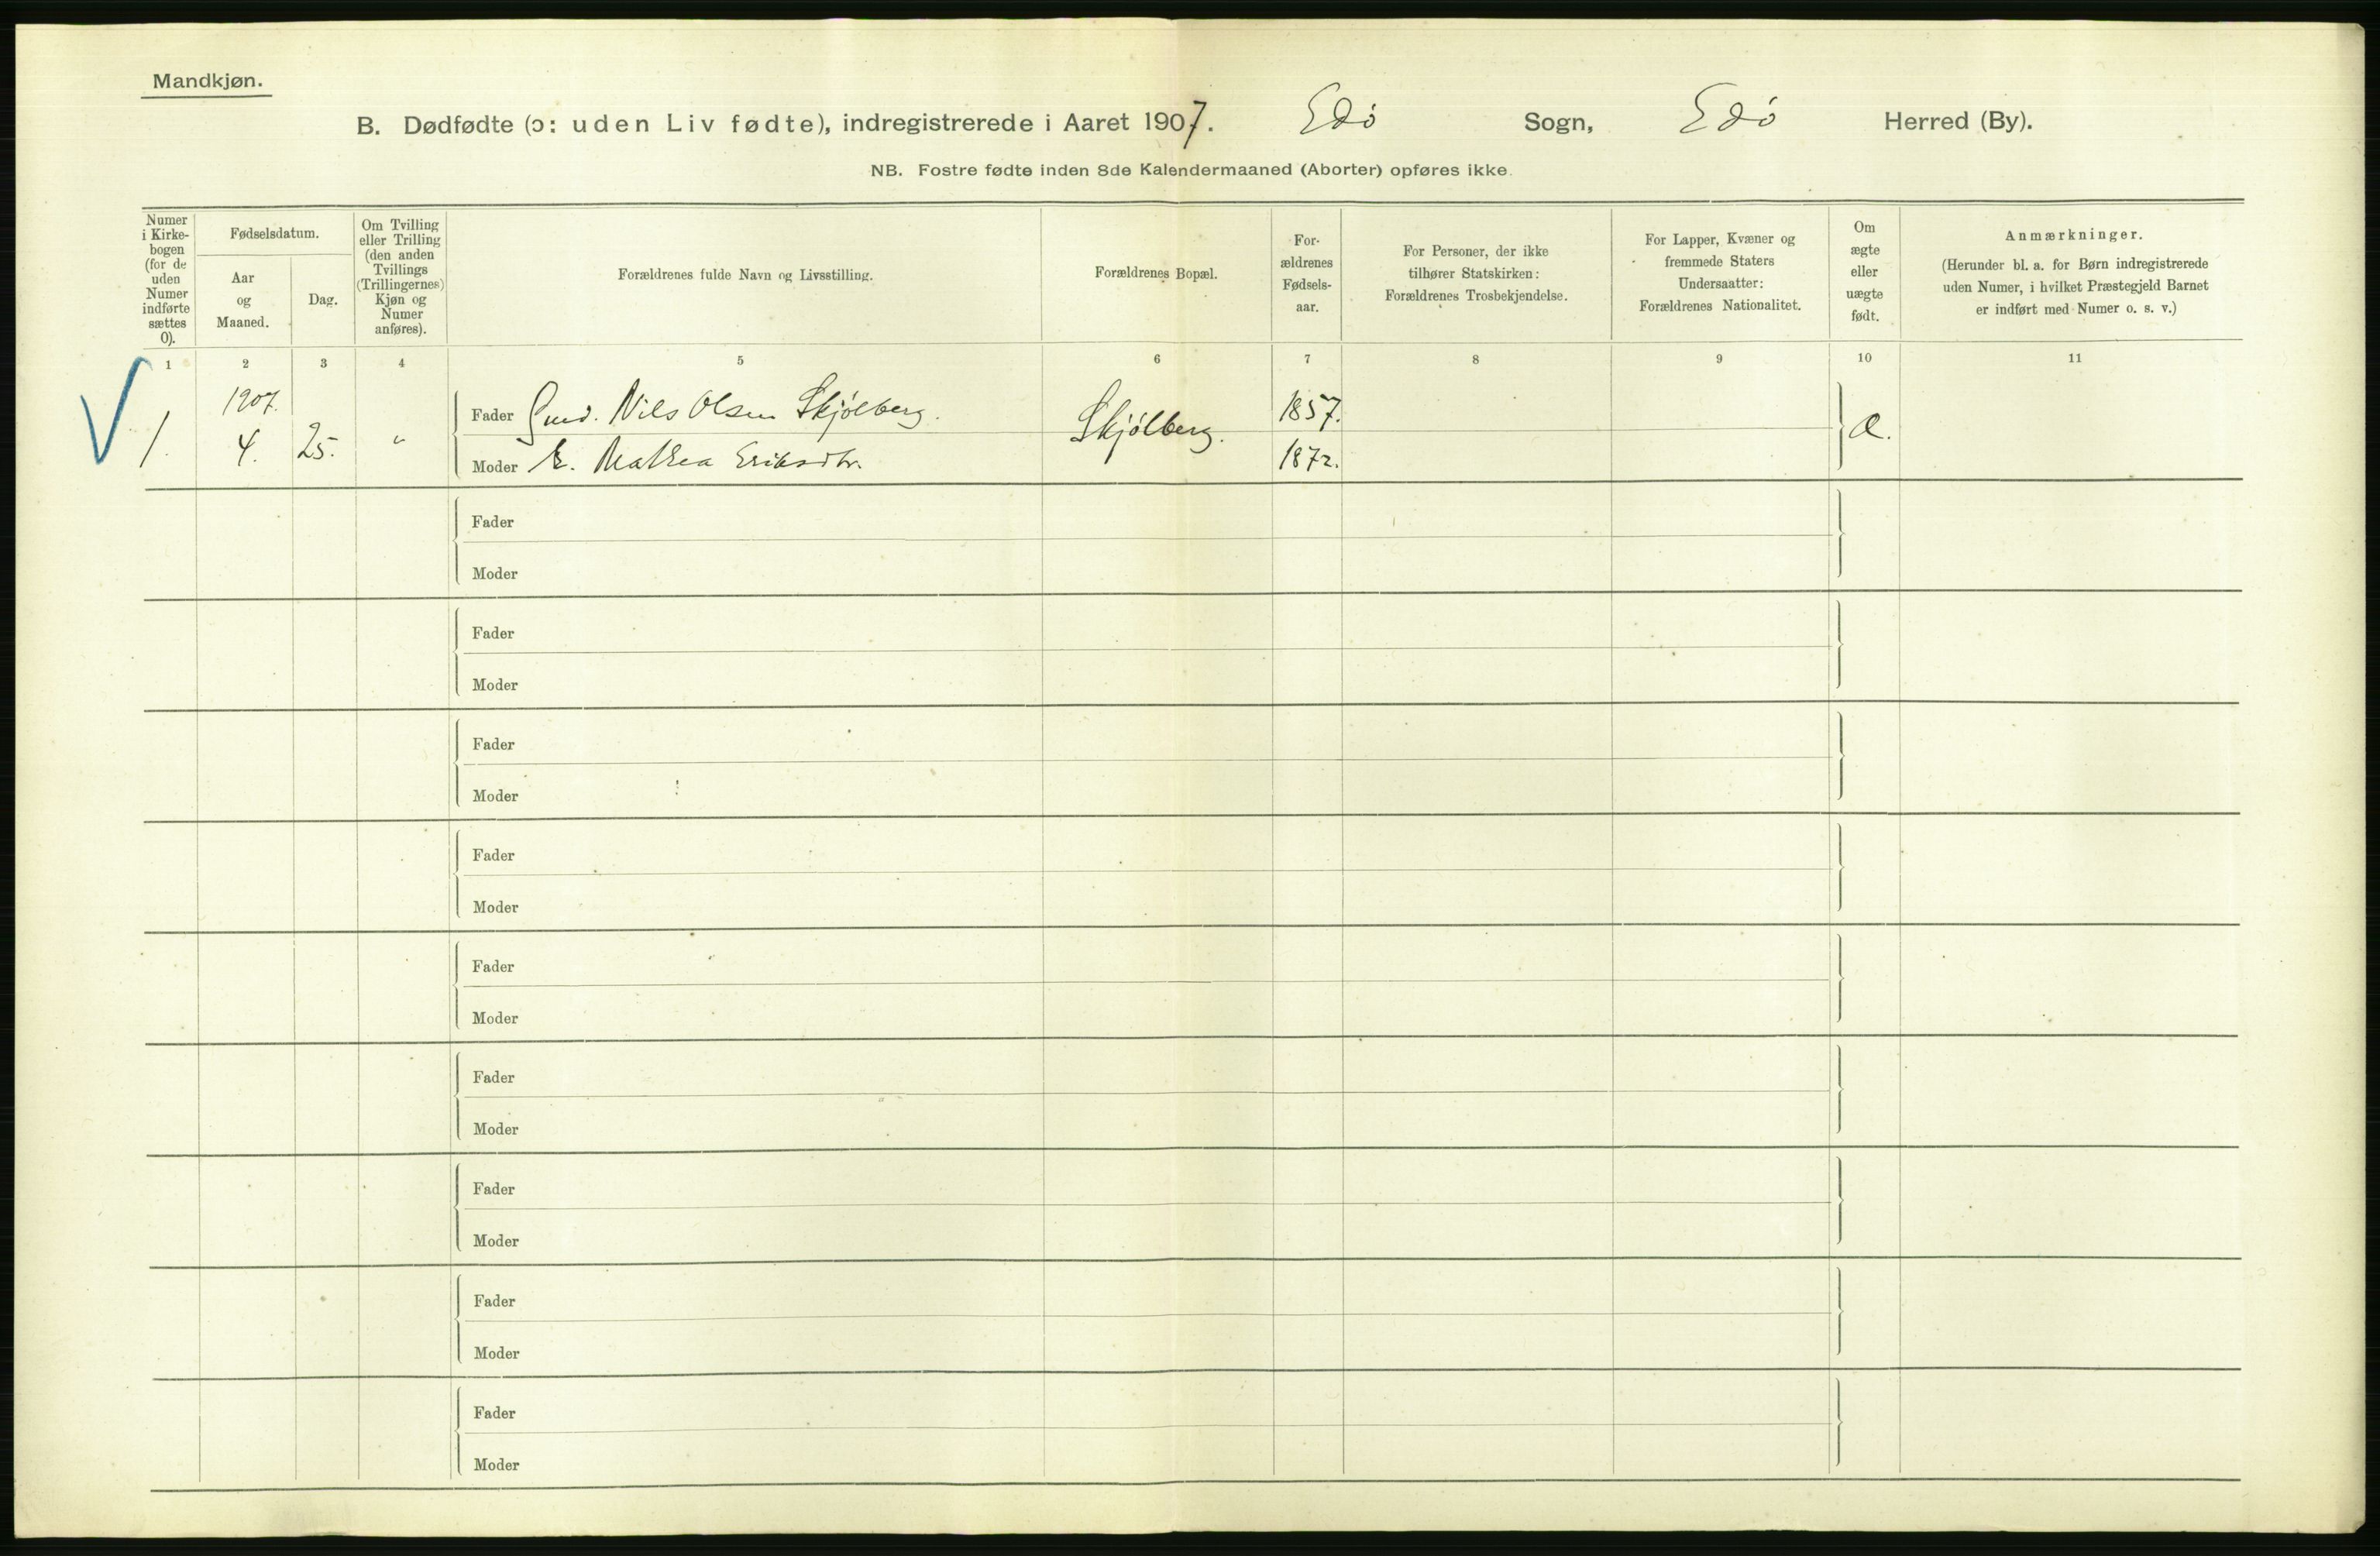 Mandkjøn.
B. Dødfødte (ɔ: uden Liv fødte), indregistrerede i Aaret 1907. Edø Sogn, Edø Herred (By).
NB. Fostre fødte inden 8de Kalendermaaned (Aborter) opføres ikke.
Numer
i Kirke-
bogen
(for de
uden
Numer
indførte
sættes
0).
Fødselsdatum.
Aar
og
Maaned.
Dag.
Om Tvilling
eller Trilling
(den anden
Tvillings
(Trillingernes)
Kjøn og
Numer
anføres).
Forældrenes fulde Navn og Livsstilling.
Forældrenes Bopæl.
For-
ældrenes
Fødsels-
aar.
For Personer, der ikke
tilhører Statskirken:
Forældrenes Trosbekjendelse.
For Lapper, Kvæner og
fremmede Staters
Undersaatter:
Forældrenes Nationalitet.
Om
ægte
eller
uægte
født.
Anmærkninger.
(Herunder bl. a. for Børn indregistrerede
uden Numer, i hvilket Præstegjeld Barnet
er indført med Numer o. s. v.)
1 2 3 4 5 6 7 8 9 10 11
1907.
1. 4. 25. "
Fader Gmd. Nils Olsen Skjölberg.
Moder E. Mathea Eriksdtr.
Skjölberg.
1857.
1872.
Æ.
Fader
Moder
Fader
Moder
Fader
Moder
Fader
Moder
Fader
Moder
Fader
Moder
Fader
Moder
Fader
Moder
Fader
Moder